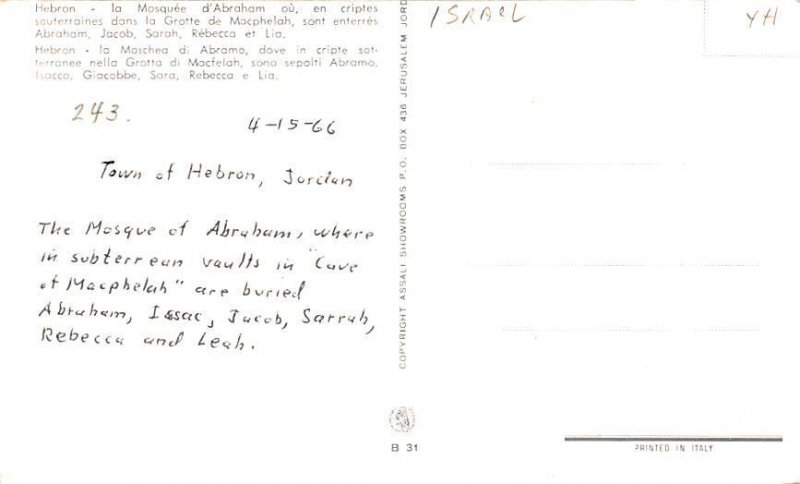 Hebron - la Mosquée d'Abraham où, en criptes
souterraines dans la Grotte de Macphelah, sont enterrés
Abraham, Jacob, Sarah, Rébecca et Lia.
Hebron - la Moschea di Abramo, dove in cripte sot-
terranee nella Grotta di Macfelah, sono sepolti Abramo,
Isacco, Giacobbe, Sara, Rebecca e Lia.
243.
4-15-66
Town of Hebron, Jordan
The Mosque of Abraham, where
in subterrean vaults in "Cave
of Macphelah" are buried
Abraham, Issac, Jacob, Sarrah,
Rebecca and Leah.
COPYRIGHT ASSALI SHOWROOMS P.O. BOX 436 JERUSALEM JORD
B 31
ISRAEL
YH
PRINTED IN ITALY